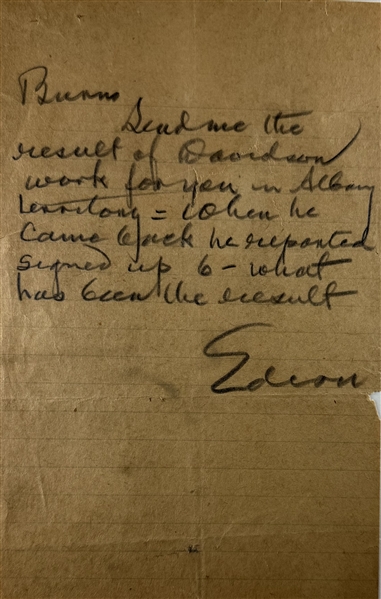 Burns
Send me the
result of Davidson
work for you in Albany
territory = When he
Came back he reported
signed up 6 - what
has been the result
Edison